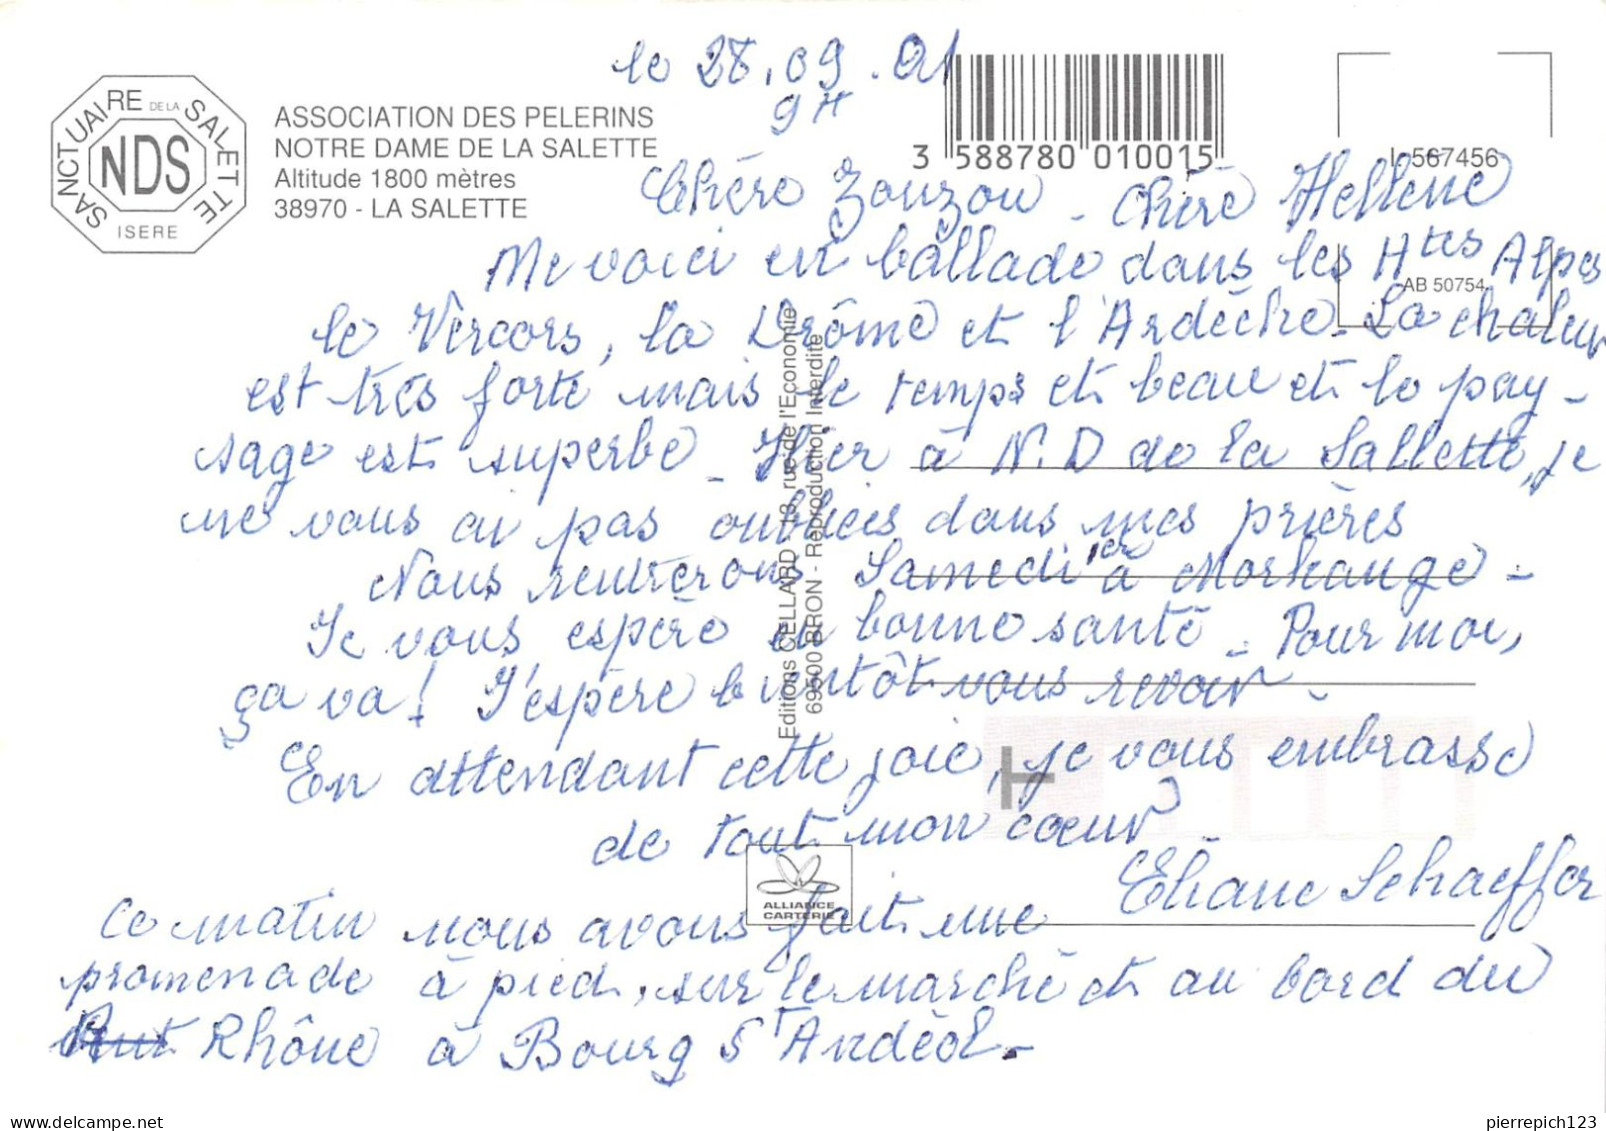 le 28.09.01
9H
SANCTUAIRE DE LA SALETTE
NDS
ISERE
ASSOCIATION DES PELERINS
NOTRE DAME DE LA SALETTE
Altitude 1800 mètres
38970 - LA SALETTE
3 588780 010015
L 567456
AB 50754
Chère Zouzou - Chère Hellene
Me voici en ballade dans les Htes Alpes
le Vercors, la Drôme et l'Ardèche. La chaleur
est très forte mais le temps et beau et le pay-
sage est superbe - Hier à N.D de la Sallette, je
ne vous ai pas oubliées dans mes prières
Nous rentrerons Samedi 1er à Morhange -
Je vous espère en bonne santé - Pour moi,
ça va! J'espère bientôt vous revoir -
En attendant cette joie, je vous embrasse
de tout mon cœur
Eliane Schaeffer
Ce matin nous avons fait une
promenade à pied, sur le marché et au bord du
Rhône à Bourg St Andéol -
Editions CELLARD - 13, rue de l'Economie
69500 BRON - Reproduction Interdite
ALLIANCE
CARTERIE
pierrepich123